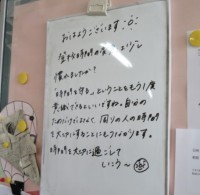 おはようございます
登校時間の
慣れましたか?
時間を守るということをもう1度
意識できるといいですね。自分の
ためだけじゃなくて、周りの人の時間も
大切にすることにもつながります。
時間を大切に過ごして
いこう～